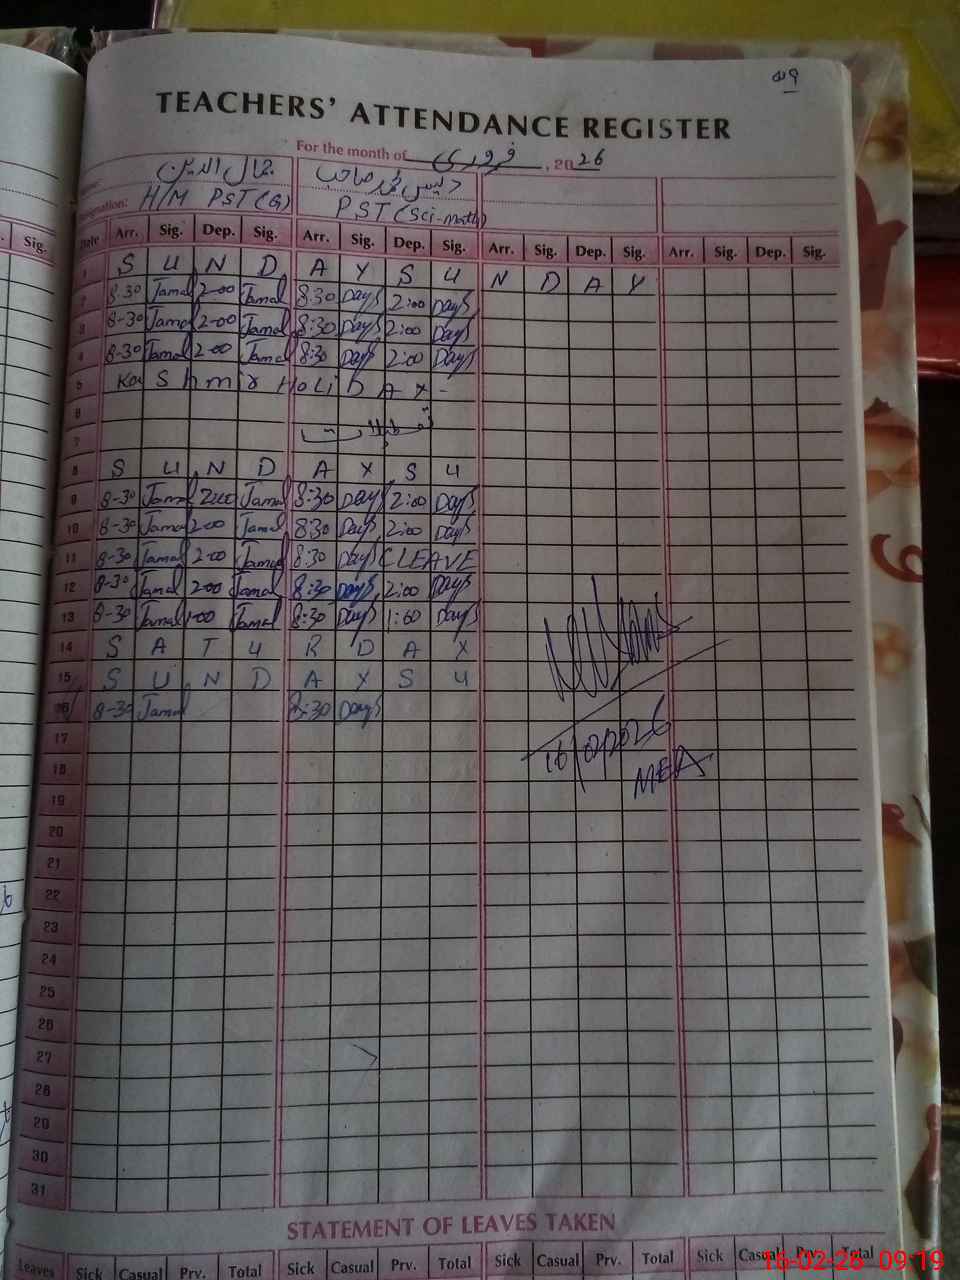 49
TEACHERS' ATTENDANCE REGISTER
For the month of فروری, 2026
جمال الدین
Designation: H/M PST(G) PST(Sci-math)
Date Arr. Sig. Dep. Sig. Arr. Sig. Dep. Sig. Arr. Sig. Dep. Sig. Arr. Sig. Dep. Sig.
Sig.
1 S U N D A Y S U N D A Y
2 8.30 Jamal 2-00 Jamal 8:30 2:00
3 8-30 Jamal 2-00 Jamal 8:30 2:00
4 8-30 Jamal 2-00 Jamal 8:30 2:00
5 Kashmir HoLiDAY -
6
7
8 S U N D A Y S U
9 8-30 Jamal 2-00 Jamal 8:30 2:00
10 8-30 Jamal 2-00 Jamal 8:30 2:00
11 8-30 Jamal 2-00 Jamal 8:30 CLEAVE
12 8-30 Jamal 2-00 Jamal 8:30 2:00
13 8-30 Jamal 1-00 Jamal 8:30
14 S A T U R D A Y
15 S U N D A Y S U
16 8-30 Jamal 8:30
17
18 MEA
19
20
21
22
23
24
25
26
27
28
29
30
31
STATEMENT OF LEAVES TAKEN
Leaves Sick Casual Prv. Total Sick Casual Prv. Total Sick Casual Prv. Total Sick Casual Prv. Total
16-02-26 09:19